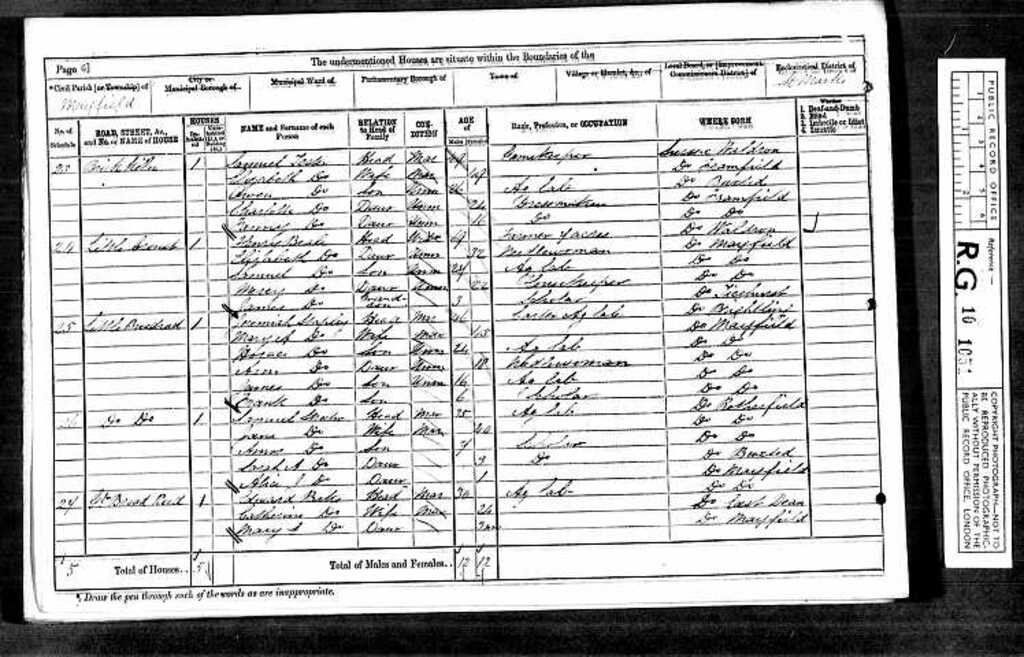 The undermentioned Houses are situate within the Boundaries of the
Page 6
*Civil Parish [or Township] of
City or Municipal Borough of
Municipal Ward of
Parliamentary Borough of
Town of
Village or Hamlet, &c., of
Local Board, or [Improvement Commissioners District] of
Ecclesiastical District of
Mayfield
St Marks
No. of Schedule
ROAD, STREET, &c., and No. or NAME of HOUSE
HOUSES
Inhabited
NAME and Surname of each Person
RELATION to Head of Family
CONDITION
AGE of
Males
Females
Rank, Profession, or OCCUPATION
WHERE BORN
Whether
1. Deaf-and-Dumb
2. Blind
3. Imbecile or Idiot
4. Lunatic
23 1 Samuel Head Mar Gamekeeper Sussex Waldron
Elizabeth Do Wife Mar 49 Do Framfield
Owen Do Son Unm 26 Ag lab Do Buxted
Charlotte Do Daur Unm 24 Dressmaker Do Framfield
Fanny Do Daur Unm 16 Do Do Do
24 Little 1 Thomas Beale Head Farmer 7 acres Do Waldron
Elizabeth Do Daur Unm 32 Needlewoman Do Mayfield
Samuel Do Son Unm 24 Ag lab Do Do
Mercy Do Daur 22 Housekeeper Do Do
James Do Grandson 3 Scholar Do Ticehurst
25 Little 1 Jeremiah Head Mar 46 Carter Ag lab Do Brightling
Mary A Do Wife Mar 45 Do Mayfield
Horace Do Son Unm 24 Ag lab Do Do
Do Daur Unm 18 Needlewoman Do Do
James Do Son Unm 16 Ag lab Do Do
Frank Do Son 6 Scholar Do Do
26 Do Do 1 Samuel Head Mar 35 Ag lab Do Rotherfield
Jane Do Wife Mar 40 Do Do
Amos Do Son 7 Scholar Do Do
Sarah A Do Daur 3 Do Do Buxted
Alice J Do Daur 1 Do Mayfield
27 Broad Reed 1 Edward Head Mar 30 Ag lab Do Do
Catherine Do Wife Mar 26 Do East Dean
Mary A Do Daur Do Mayfield
5 Total of Houses.. 5
Total of Males and Females.. 12 12
*] Draw the pen through such of the words as are inappropriate.
PUBLIC RECORD OFFICE
Reference :-
R.G. 10
COPYRIGHT PHOTOGRAPH—NOT TO BE REPRODUCED PHOTOGRAPHICALLY WITHOUT PERMISSION OF THE PUBLIC RECORD OFFICE, LONDON